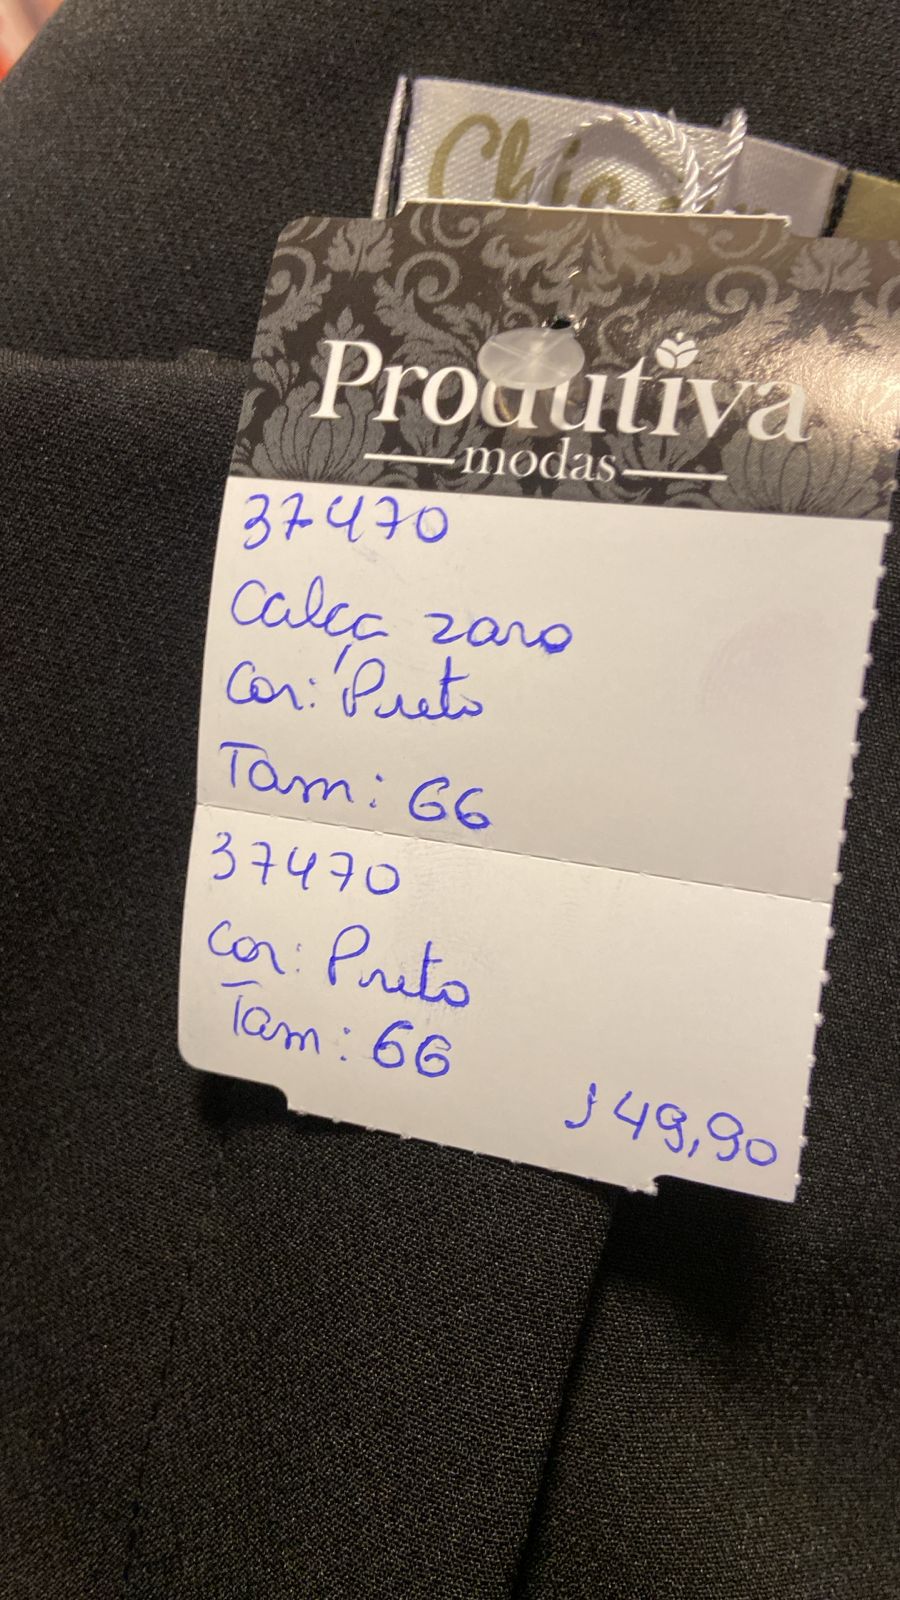 Produtiva
modas
37470
Calça zara
Cor: Preto
Tam: 66
37470
Cor: Preto
Tam: 66
149,90